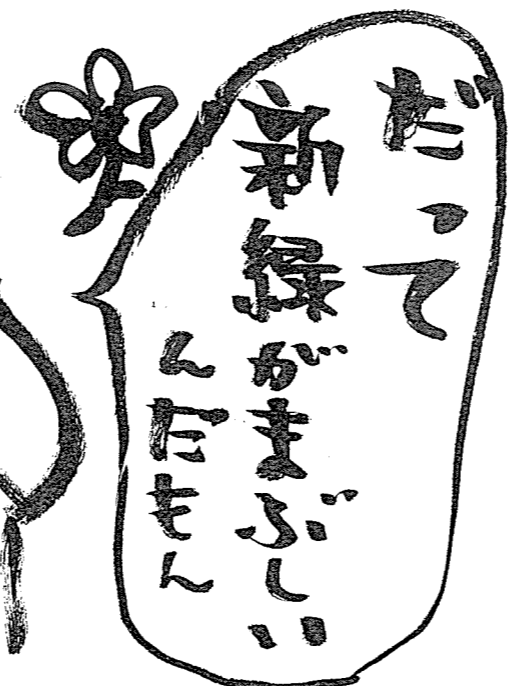 だって
新緑がまぶしい
んだもん